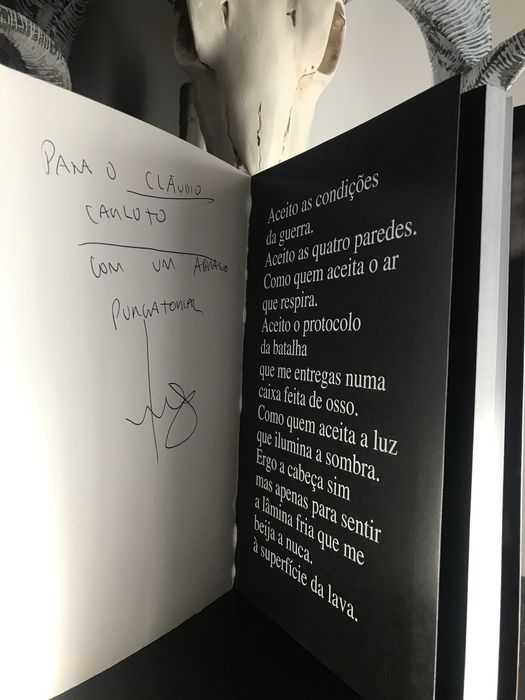 PARA O CLÁUDIO
CARLOTO
COM UM ABRAÇO
PURGATORIAL
Aceito as condições
da guerra.
Aceito as quatro paredes.
Como quem aceita o ar
que respira.
Aceito o protocolo
da batalha
que me entregas numa
caixa feita de osso.
Como quem aceita a luz
que ilumina a sombra.
Ergo a cabeça sim
mas apenas para sentir
a lâmina fria que me
beija a nuca.
à superfície da lava.